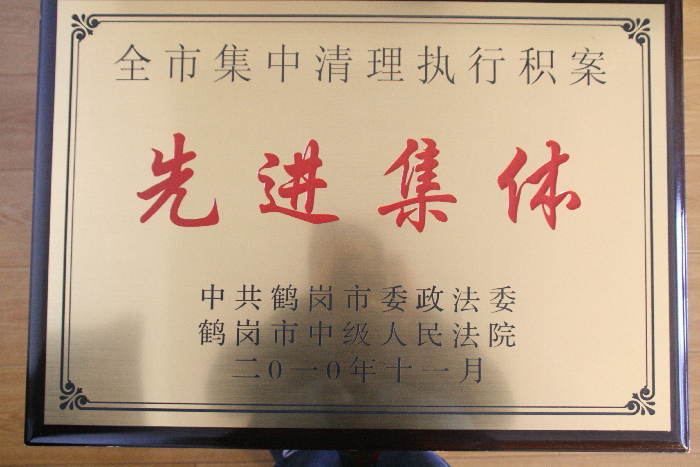 全市集中清理执行积案
先进集体
中共鹤岗市委政法委
鹤岗市中级人民法院
二〇一〇年十一月